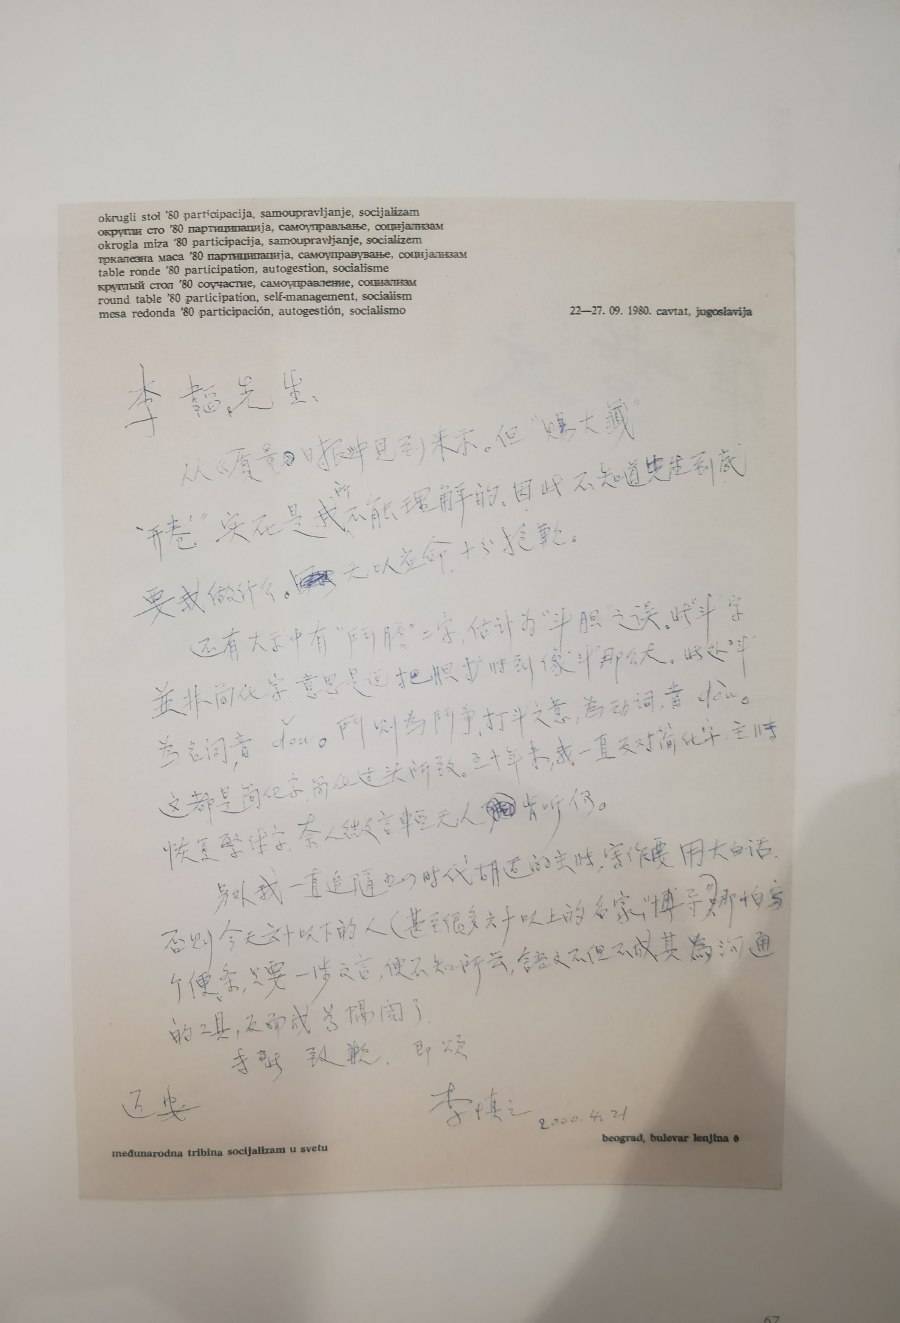 okrugli stol '80 participacija, samoupravljanje, socijalizam
округли сто '80 партиципација, самоуправљање, социјализам
okrogla miza '80 participacija, samoupravljanje, socializem
тркалезна маса '80 партиципација, самоуправување, социјализам
table ronde '80 participation, autogestion, socialisme
круглый стол '80 соучастие, самоуправление, социализм
round table '80 participation, self-management, socialism
mesa redonda '80 participación, autogestión, socialismo
22—27. 09. 1980. cavtat, jugoslavija
李韬先生、
从《质量日报》中见到来示。但“赐大藏
“开卷”实在是我所不能理解的,因此不知道先生到底
要我做什么。无以应命,十分抱歉。
还有大示中有“鬥胆”二字,估计为“斗胆”之误。此“斗”字
並非简化字,意思是说把胆扩张到像“斗”那么大。此处“斗”
为名词,音 dǒu。鬥则为鬥争,打斗之意,为动词,音 dòu。
这都是简化字简化过头所致。五十年来,我一直反对简化字,主张
恢复繁体字,奈人微言轻无人肯听何。
另外我一直追随五四时代胡适的主张,写作要用大白话,
否则今天六十以下的人(甚至很多六十以上的名家,“博导”)哪怕写
个便条,只要一涉文言,便不知所云,語文不但不成其為沟通
的工具,反而成為隔阂了。
手此致歉,即颂
近安
李慎之 2000.4.21
međunarodna tribina socijalizam u svetu
beograd, bulevar lenjina 6
67